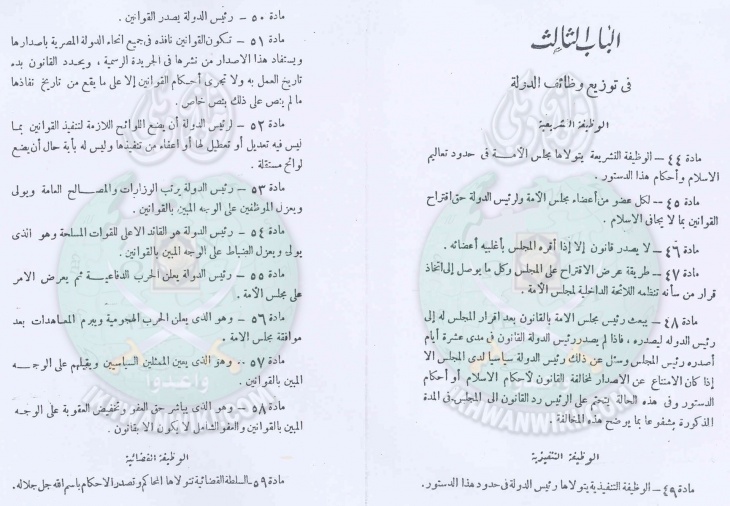 الباب الثالث
فى توزيع وظائف الدولة
الوظيفة التشريعية
مادة ٤٤ – الوظيفة التشريعية يتولاها مجلس الأمة فى حدود تعاليم
الاسلام وأحكام هذا الدستور .
مادة ٤٥ – لكل عضو من أعضاء مجلس الأمة ولرئيس الدولة حق اقتراح
القوانين بما لا يجافى الاسلام .
مادة ٤٦ – لا يصدر قانون إلا إذا أقره المجلس بأغلبية أعضائه .
مادة ٤٧ – طريقة عرض الاقتراح على المجلس وكل ما يوصل إلى اتخاذ
قرار من شأنه تنظمه اللائحة الداخلية لمجلس الأمة .
مادة ٤٨ – يبعث رئيس مجلس الامة بالقانون بعد اقرار المجلس له إلى
رئيس الدولة ليصدره ، فاذا لم يصدر رئيس الدولة القانون فى مدى عشرة أيام
أصدره رئيس المجلس وسئل عن ذلك رئيس الدولة سياسيا لدى المجلس الا
إذا كان الامتناع عن الاصدار لمخالفة القانون لأحكام الاسلام أو أحكام
الدستور وفى هذه الحالة يتحتم على الرئيس رد القانون الى المجلس فى المدة
المذكورة مشفوعا بما يوضح هذه المخالفة .
الوظيفة التنفيذية
مادة ٤٩ – الوظيفة التنفيذية يتولاها رئيس الدولة فى حدود هذا الدستور .
مادة ٥٠ – رئيس الدولة يصدر القوانين .
مادة ٥١ – تكون القوانين نافذه فى جميع انحاء الدولة المصرية باصدارها
ويستفاد هذا الاصدار من نشرها فى الجريدة الرسمية ، ويحدد القانون بدء
تاريخ العمل به ولا تجرى أحكام القوانين إلا على ما يقع من تاريخ نفاذها
ما لم ينص على ذلك بنص خاص .
مادة ٥٢ – لرئيس الدولة أن يضع اللوائح اللازمة لتنفيذ القوانين بما
ليس فيه تعديل أو تعطيل لها أو اعفاء من تنفيذها وليس له بأية حال أن يضع
لوائح مستقلة .
مادة ٥٣ – رئيس الدولة يرتب الوزارات والمصالح العامة ويولى
ويعزل الموظفين على الوجه المبين بالقوانين .
مادة ٥٤ – رئيس الدولة هو القائد الاعلى للقوات المسلحة وهو الذى
يولى ويعزل الضباط على الوجه المبين بالقوانين .
مادة ٥٥ – رئيس الدولة يعلن الحرب الدفاعية ثم يعرض الامر
على مجلس الأمة .
مادة ٥٦ – وهو الذى يعلن الحرب الهجومية ويبرم المعاهدات بعد
موافقة مجلس الامة .
مادة ٥٧ – وهو الذى يعين الممثلين السياسيين ويقيلهم على الوجه
المبين بالقوانين .
مادة ٥٨ – وهو الذى يباشر حق العفو وتخفيض العقوبة على الوجه
المبين بالقوانين والعفو الشامل لا يكون إلا بقانون .
الوظيفة القضائية
مادة ٥٩ – السلطة القضائية تتولاها المحاكم وتصدر الاحكام باسم الله جل جلاله .
وأعدوا
وأعدوا
IKHWANWIKI.COM